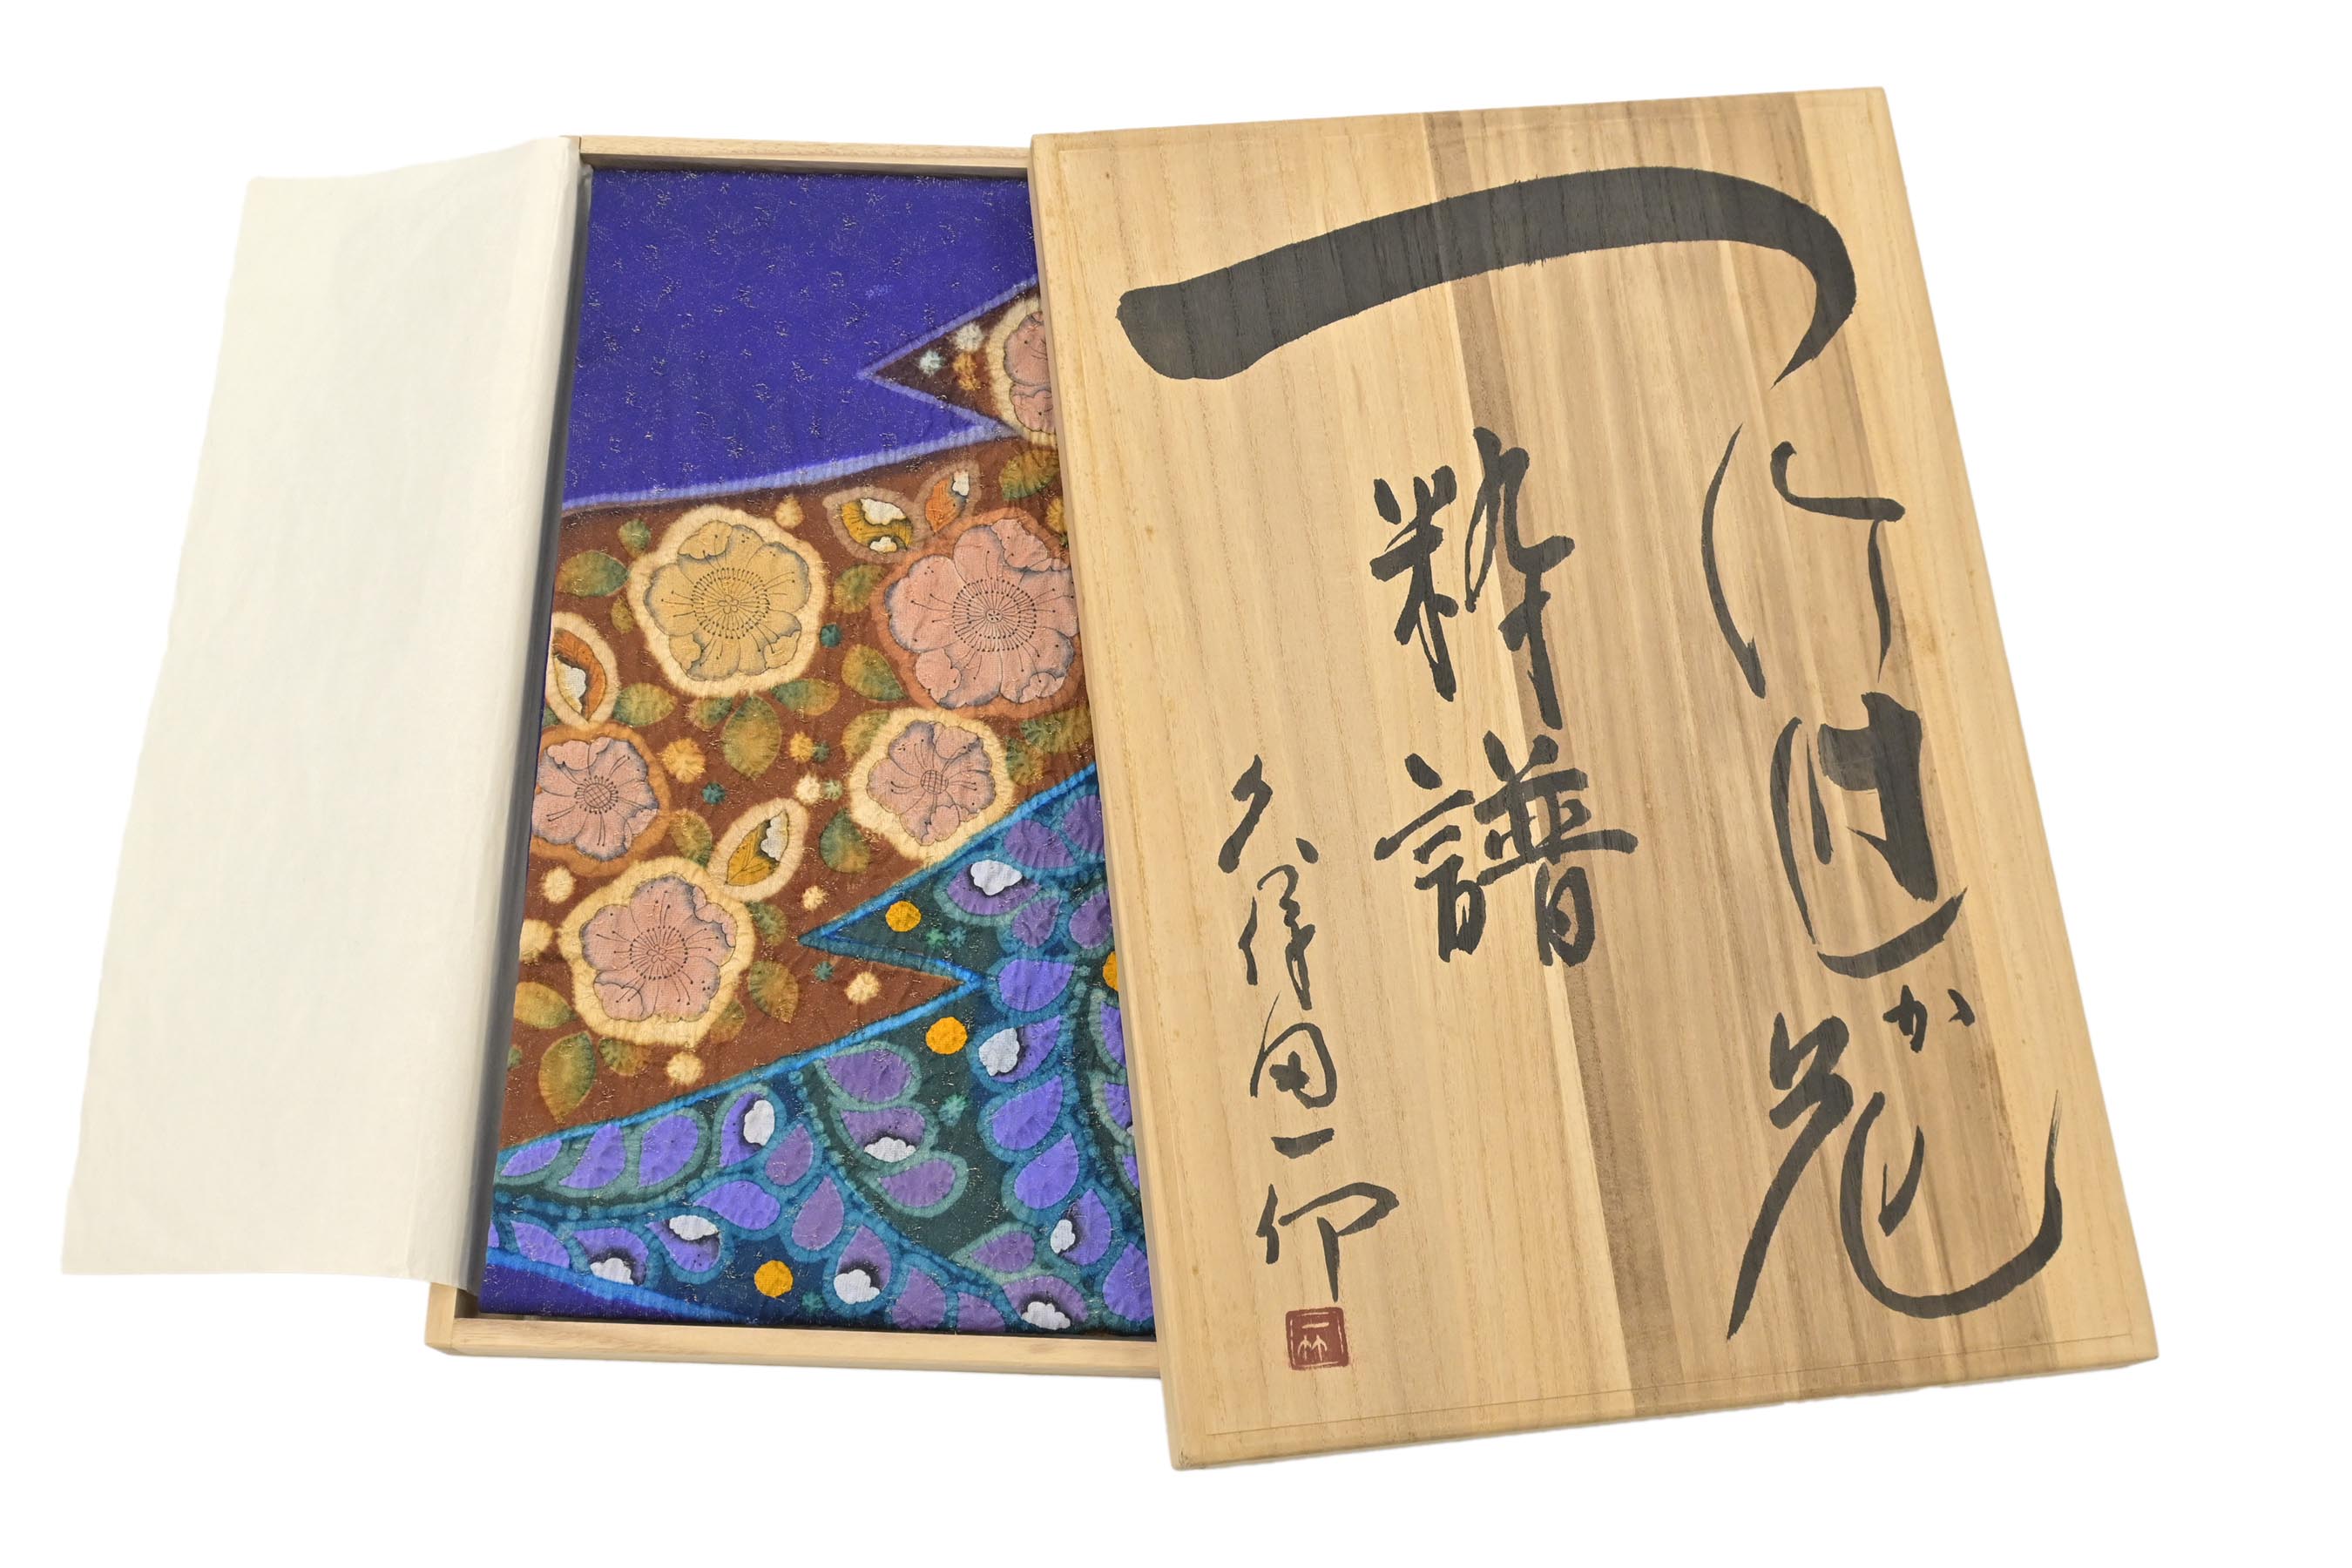 一竹辻か花
粋譜
久保田一竹
一竹